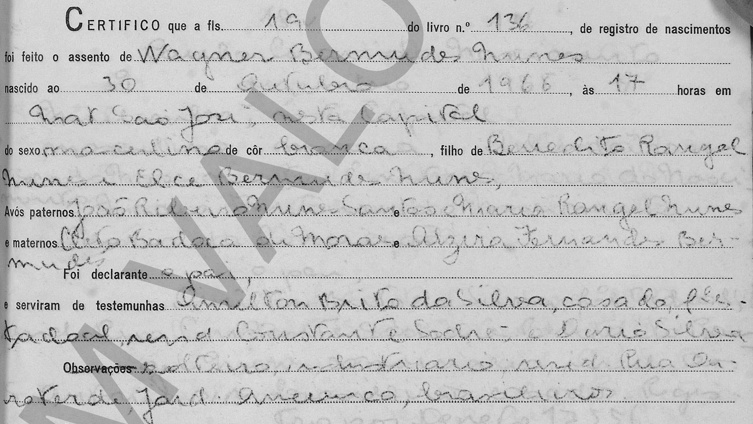 CERTIFICO que a fls. 19 do livro n.º 136, de registro de nascimentos
foi feito o assento de Wagner Bermudes Nunes
nascido ao 30 de outubro de 1966, às 17 horas em
Mat São José, nesta Capital
do sexo masculino de côr branca, filho de Benedito Rangel
Nunes e Elce Bermudes Nunes,
Avós paternos José Ribeiro Nunes Santos e Maria Rangel Nunes
e maternos Cleto Badaca de Moraes e Alzira Fernandes Ber-
mudes
Foi declarante o pai,
e serviram de testemunhas Amilton Brito da Silva, casado, resid Constante Sodré e Dario Silva
Observações: solteiro, industriario resid Rua
Jard. America, brasileiros.
M VALO